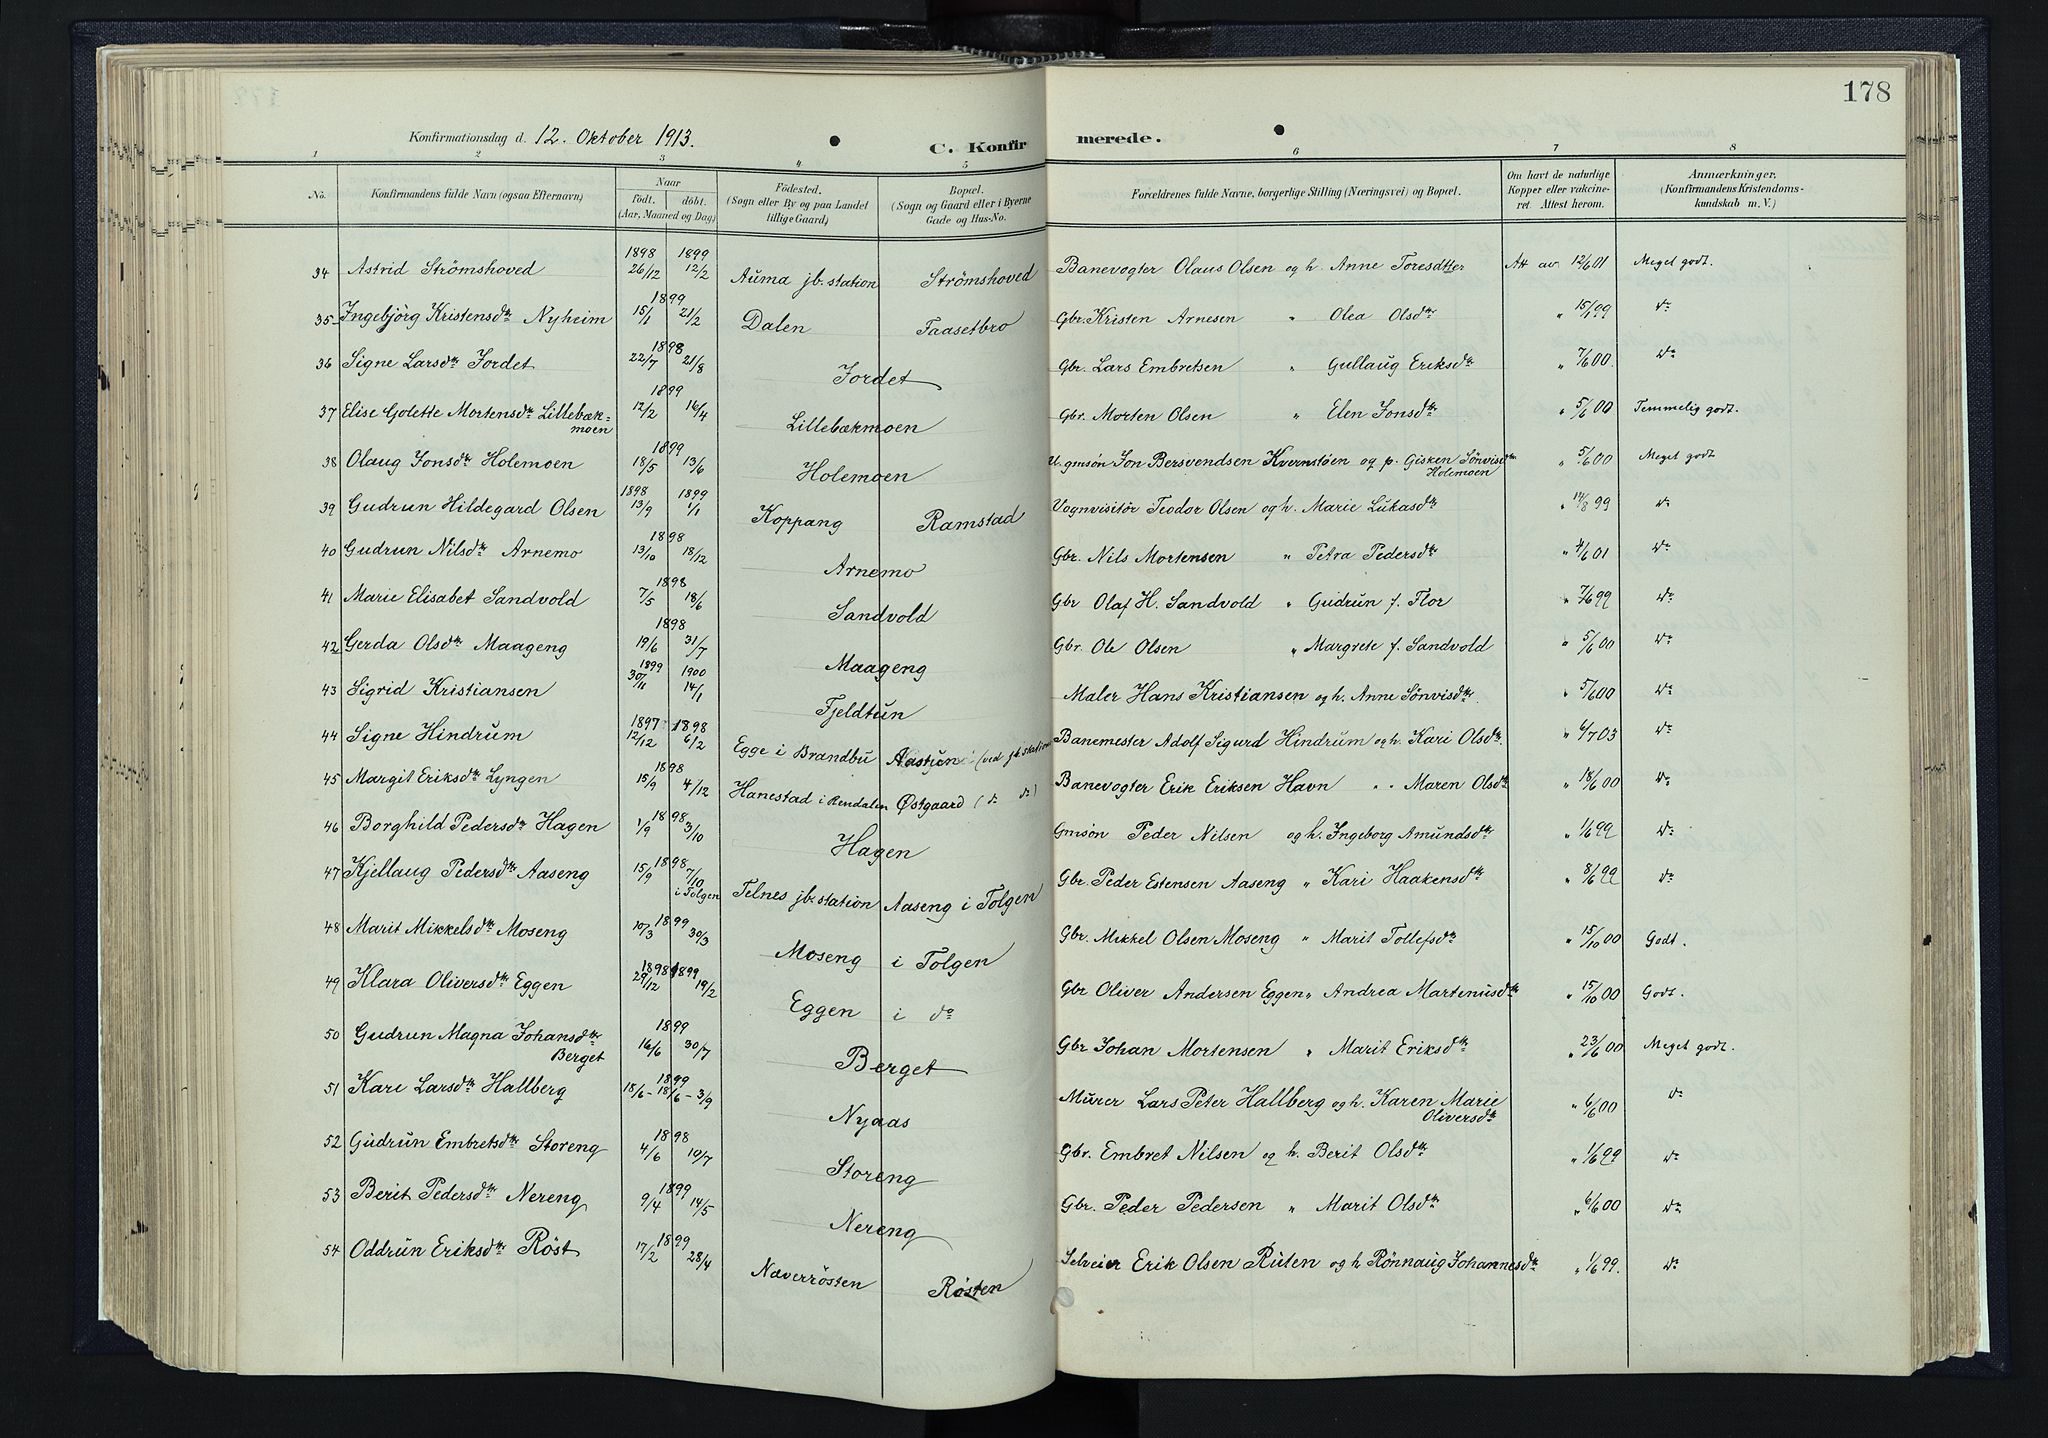 178
Konfirmationsdag d. 12. Oktober 1913.
C. Konfirmerede.
1 2 3 4 5 6 7 8
No. | Konfirmandens fulde Navn (ogsaa Efternavn) | Naar født. døbt. (Aar, Maaned og Dag) | Födested. (Sogn eller By og paa Landet tillige Gaard) | Bopæl. (Sogn og Gaard eller i Byerne Gade og Hus-No. | Forældrenes fulde Navne, borgerlige Stilling (Næringsvei) og Bopæl. | Om havt de naturlige Kopper eller vakcineret. Attest herom. | Anmærkninger. (Konfirmandens Kristendomskundskab m. V.)
34 Astrid Strömshoved 1898 26/12 1899 12/2 Auma jb. station Strömshoved Banevogter Olaus Olsen og h. Anne Toresdtter Att av 12/6 01 Meget godt.
35 Ingebjörg Kristensdtr Nyheim 1899 15/1 21/2 Dalen Faasetbro Gbr. Kristen Arnesen " Olea Olsdtr " 15/1 99 do
36 Signe Larsdtr Jordet 1898 22/7 21/8 Jordet Gbr. Lars Embretsen " Gullaug Eriksdtr " 7/6 00. do
37 Elise Golette Mortensdtr Lillebækmoen 1899 12/2 16/4 Lillebækmoen Gbr. Morten Olsen " Elen Jonsdtr " 5/6 00 Temmelig godt.
38 Olaug Jonsdtr Holemoen 1899 18/5 13/6 Holemoen U. gmsön Jon Bersvendsen Kvernstøen og p. Gisken Sönvisdtr Holemoen " 5/6 00 Meget godt
39 Gudrun Hildegard Olsen 1898 13/9 1899 1/1 Koppang Ramstad Vognvisitör Teodor Olsen og h. Marie Lukasdtr " 14/8 99 do
40 Gudrun Nilsdtr Arnemo 1898 13/10 18/12 Arnemo Gbr. Nils Mortensen " Petra Pedersdtr " 4/6 01 do
41 Marie Elisabet Sandvold 1898 7/5 18/6 Sandvold Gbr Olaf H. Sandvold " Gudrun f. Flor " 7/6 99 do
42 Gerda Olsdtr Maageng 1898 19/6 31/7 Maageng Gbr. Ole Olsen " Margrete f. Sandvold " 5/6 00 do
43 Sigrid Kristiansen 1899 30/11 1900 14/1 Fjeldtun Maler Hans Kristiansen og h. Anne Sönvisdtr. " 5/6 00 do
44 Signe Hindrum 1897 12/12 1898 6/2 Egge i Brandbu Aastjen (ved jb station Banemester Adolf Sigurd Hindrum og h. Kari Olsdtr. " 6/7 03 do
45 Margit Eriksdtr Lyngen 1898 15/9 4/12 Hanestad i Rendalen Østgaard (do do) Banevogter Erik Eriksen Havn " " Maren Olsdtr " 18/6 00 do
46 Borghild Pedersdtr Hagen 1898 1/9 3/10 Hagen Gmsön Peder Nilsen og h. Ingeborg Amundsdtr " 1/6 99 do
47 Kjellaug Pedersdtr Aaseng 1898 15/9 7/10 i Tolgen Telnes jb. station Aaseng i Tolgen Gbr. Peder Estensen Aaseng " Kari Haakensdtr " 8/6 99 do
48 Marit Mikkelsdtr Moseng 1899 10/3 30/3 Moseng i Tolgen Gbr. Mikkel Olsen Moseng " Marit Tollefsdtr " 15/10 00 Godt.
49 Klara Oliversdtr Eggen 1898 29/12 1899 19/2 Eggen i do Gbr Oliver Andersen Eggen " Andrea Martenusdtr " 15/10 00 Godt.
50 Gudrun Magna Johansdtr Berget 1899 16/6 30/7 Berget Gbr Johan Mortensen " Marit Eriksdtr " 23/6 00 Meget godt.
51 Kari Larsdtr Hallberg 1899 18/6 - 18/6 - 3/9 Nyaas Murer Lars Peter Hallberg og h. Karen Marie Oliversdtr " 6/6 00 do
52 Gudrun Embretsdtr Storeng 1898 4/6 10/7 Storeng Gbr. Embret Nilsen og h. Berit Olsdtr " 1/6 99 do
53 Berit Pedersdtr Nereng 1899 9/4 14/5 Nereng Gbr. Peder Pedersen " Marit Olsdtr " 6/6 00 do
54 Oddrun Eriksdtr Röst 1899 17/2 28/4 Næverrösten Rösten Selveier Erik Olsen Ruten og h Rönnaug Johannesdtr " 1/6 99. do